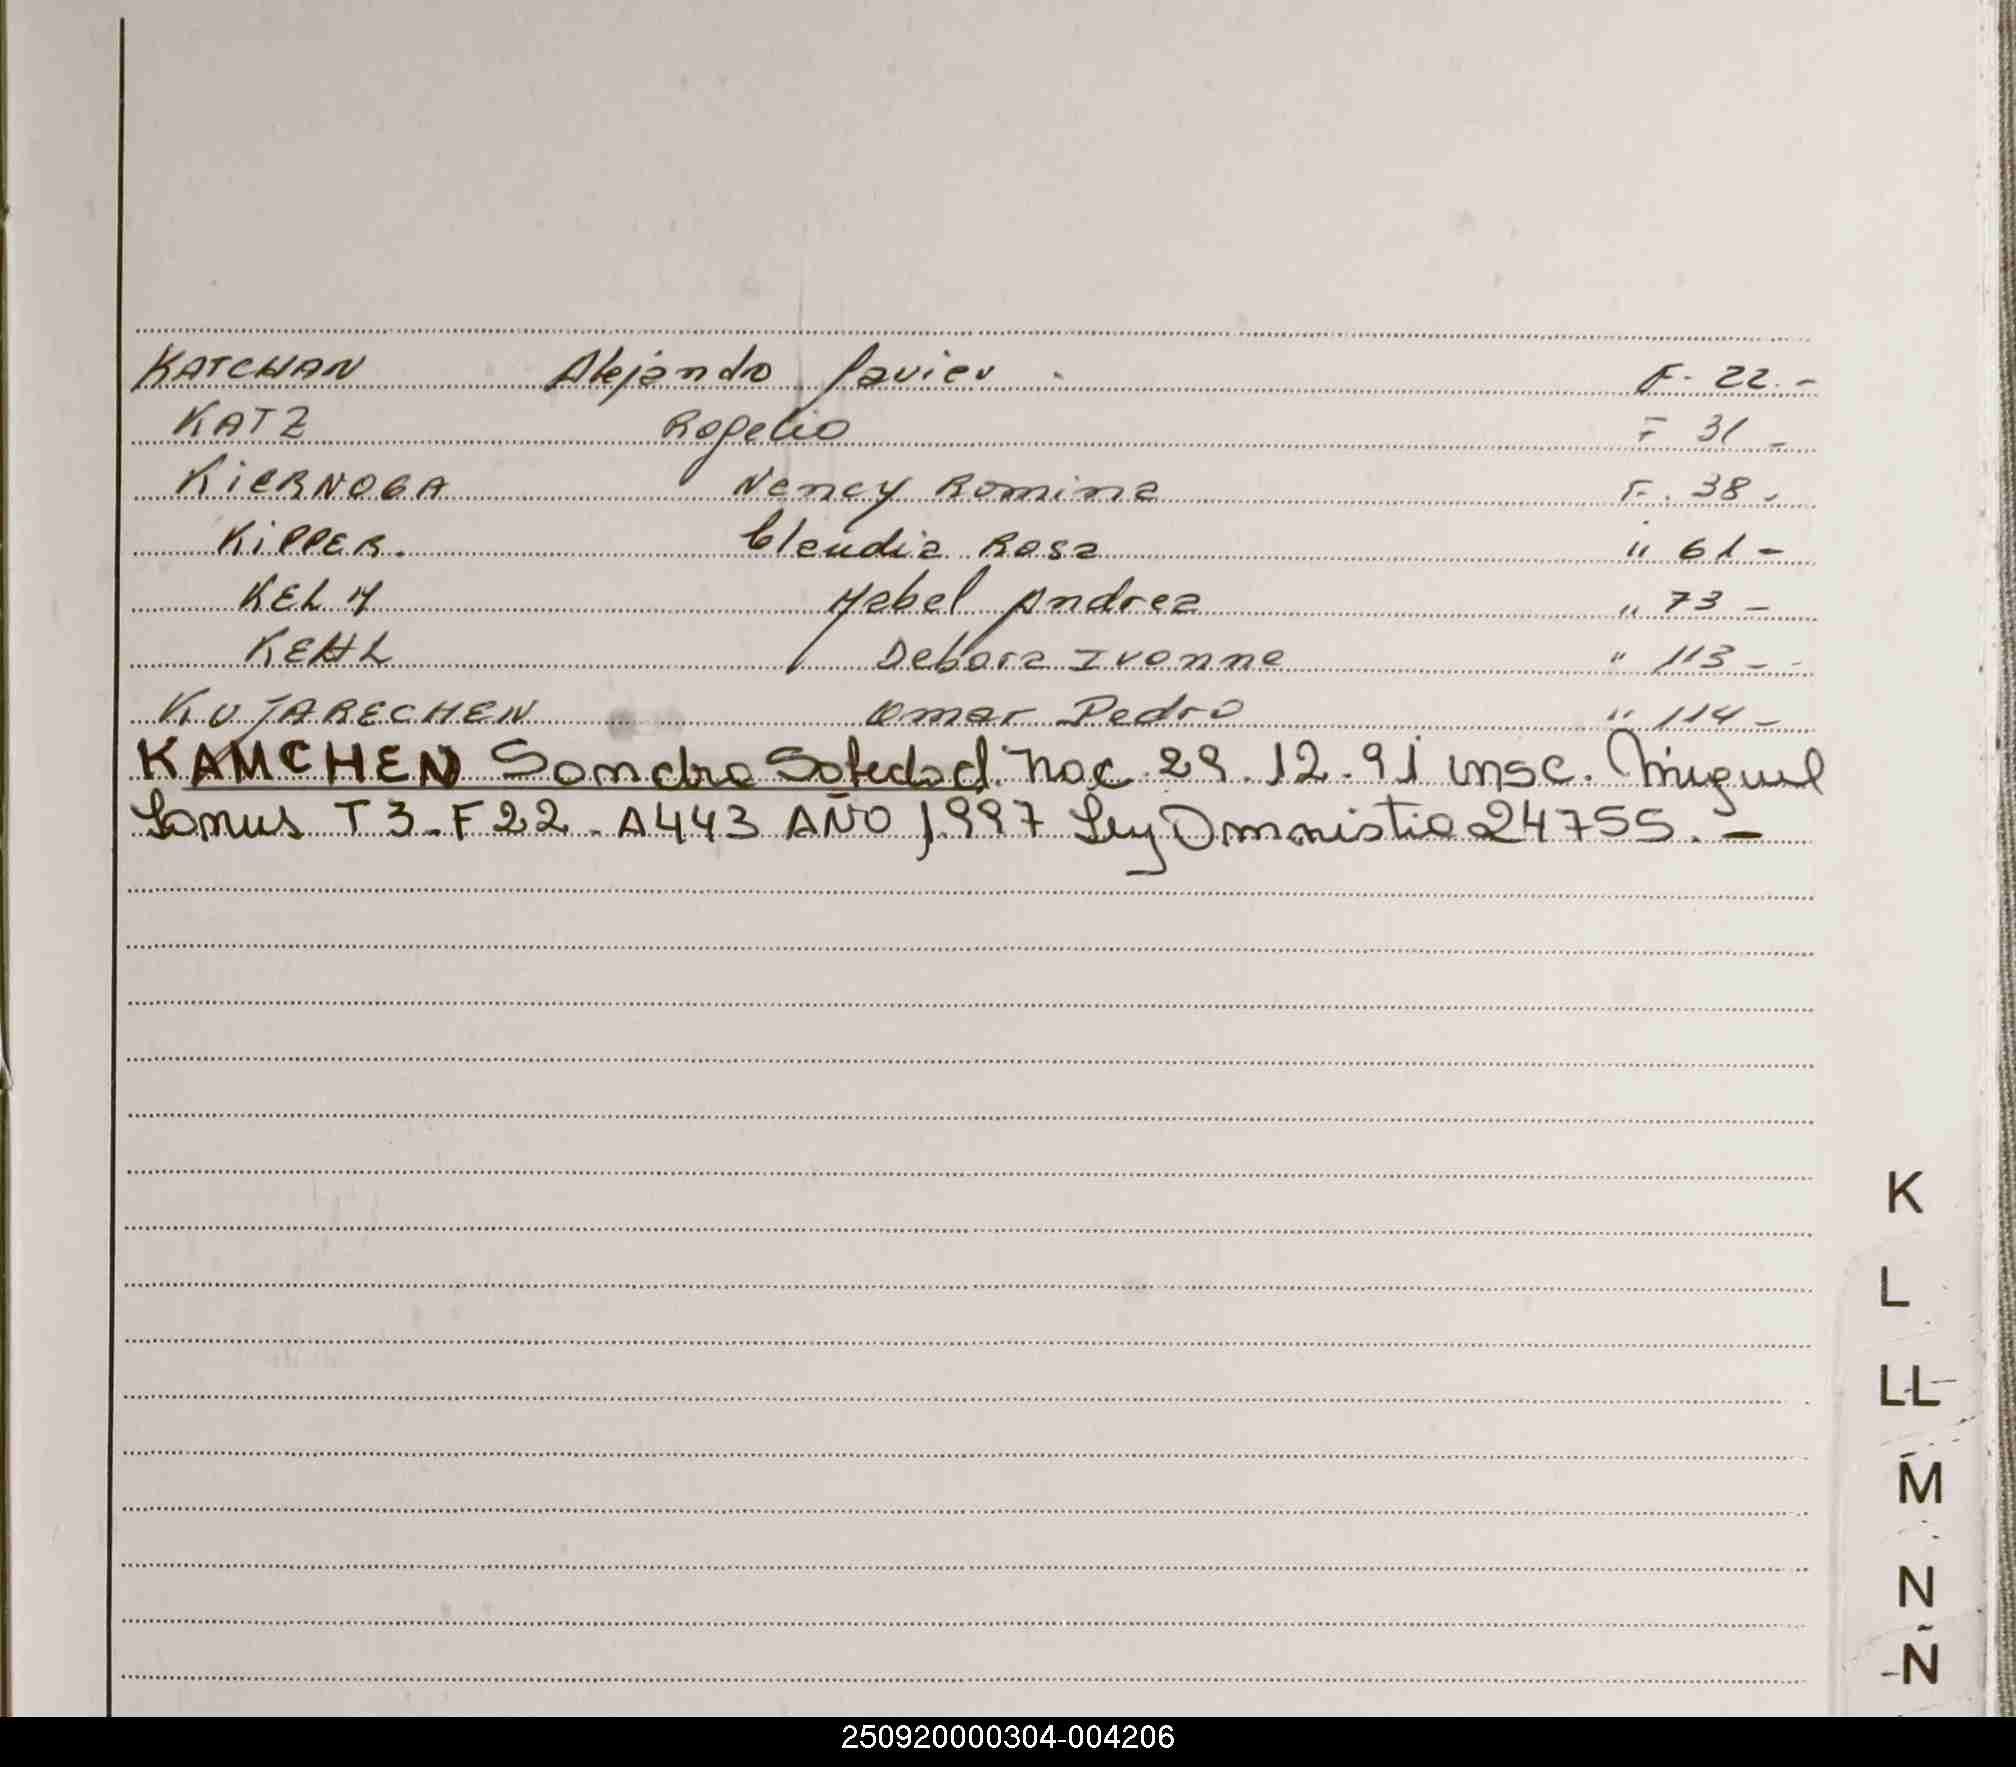 KATCHAN Alejandro Javier F. 22.-
KATZ Rogelio F 31 -
KIERNOGA Nancy Romina F. 38 -
KIPPER. Claudia Rosa " 61 -
KELM Mabel Andrea " 73 -
KEHL Debora Ivonne " 113 -
KUJARECHEN Omar Pedro " 114 -
KAMCHEN Sandra Soledad. Nac 29.12.91 insc. Miguel
Lanus T 3-F 22. A443 AÑO 1997 Ley Amnistia 24755.-
K
L
LL
M
N
Ñ
250920000304-004206